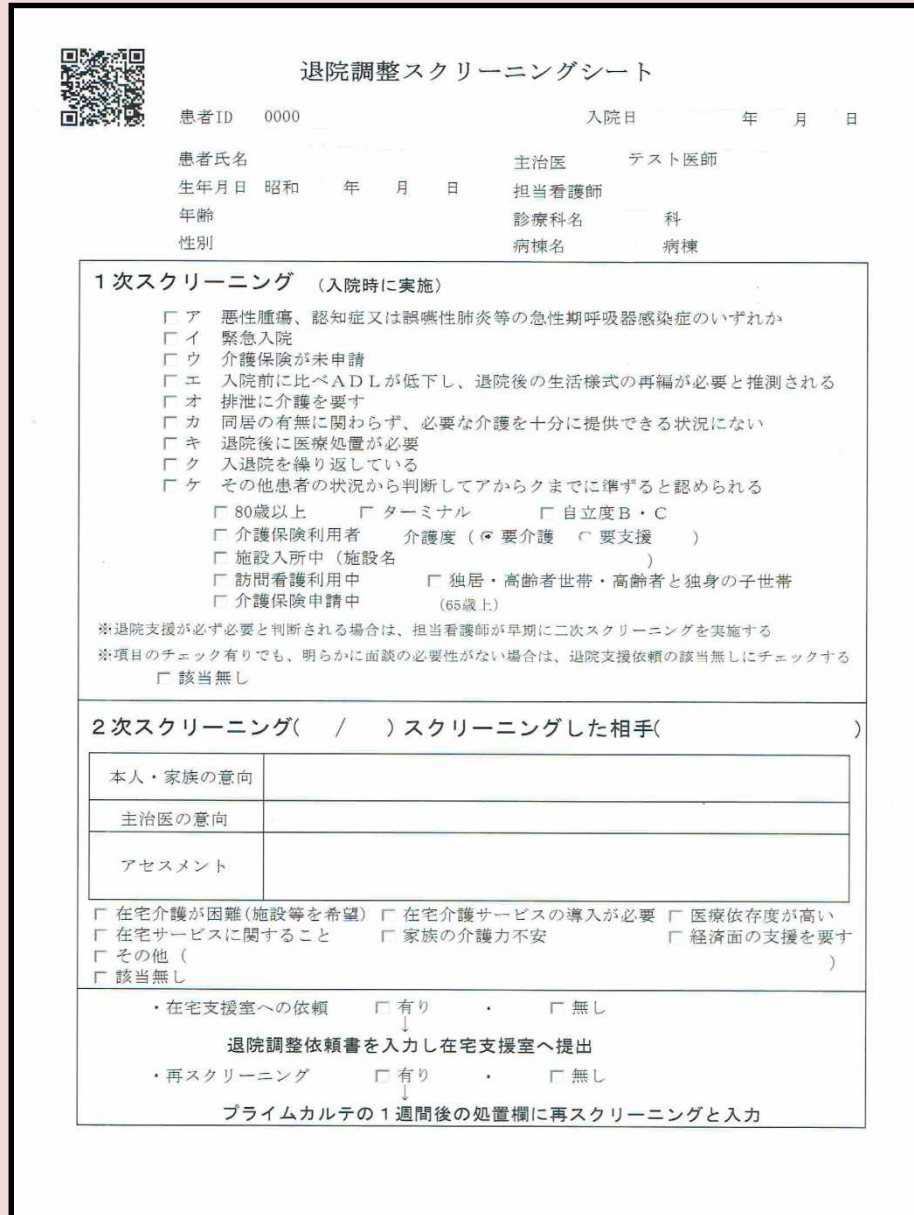 退院調整スクリーニングシート
患者ID 0000 入院日 年 月 日
患者氏名 主治医 テスト医師
生年月日 昭和 年 月 日 担当看護師
年齢 診療科名 科
性別 病棟名 病棟
1次スクリーニング (入院時に実施)
□ ア 悪性腫瘍、認知症又は誤嚥性肺炎等の急性期呼吸器感染症のいずれか
□ イ 緊急入院
□ ウ 介護保険が未申請
□ エ 入院前に比べADLが低下し、退院後の生活様式の再編が必要と推測される
□ オ 排泄に介護を要す
□ カ 同居の有無に関わらず、必要な介護を十分に提供できる状況にない
□ キ 退院後に医療処置が必要
□ ク 入退院を繰り返している
□ ケ その他患者の状況から判断してアからクまでに準ずると認められる
□ 80歳以上 □ ターミナル □ 自立度B・C
□ 介護保険利用者 介護度 (◉ 要介護 ○ 要支援 )
□ 施設入所中 (施設名 )
□ 訪問看護利用中 □ 独居・高齢者世帯・高齢者と独身の子世帯
□ 介護保険申請中 (65歳上)
※退院支援が必ず必要と判断される場合は、担当看護師が早期に二次スクリーニングを実施する
※項目のチェック有りでも、明らかに面談の必要性がない場合は、退院支援依頼の該当無しにチェックする
□ 該当無し
2次スクリーニング( / ) スクリーニングした相手( )
本人・家族の意向
主治医の意向
アセスメント
□ 在宅介護が困難(施設等を希望) □ 在宅介護サービスの導入が必要 □ 医療依存度が高い
□ 在宅サービスに関すること □ 家族の介護力不安 □ 経済面の支援を要す
□ その他 ( )
□ 該当無し
・在宅支援室への依頼 □ 有り ・ □ 無し
↓
退院調整依頼書を入力し在宅支援室へ提出
・再スクリーニング □ 有り ・ □ 無し
↓
プライムカルテの1週間後の処置欄に再スクリーニングと入力